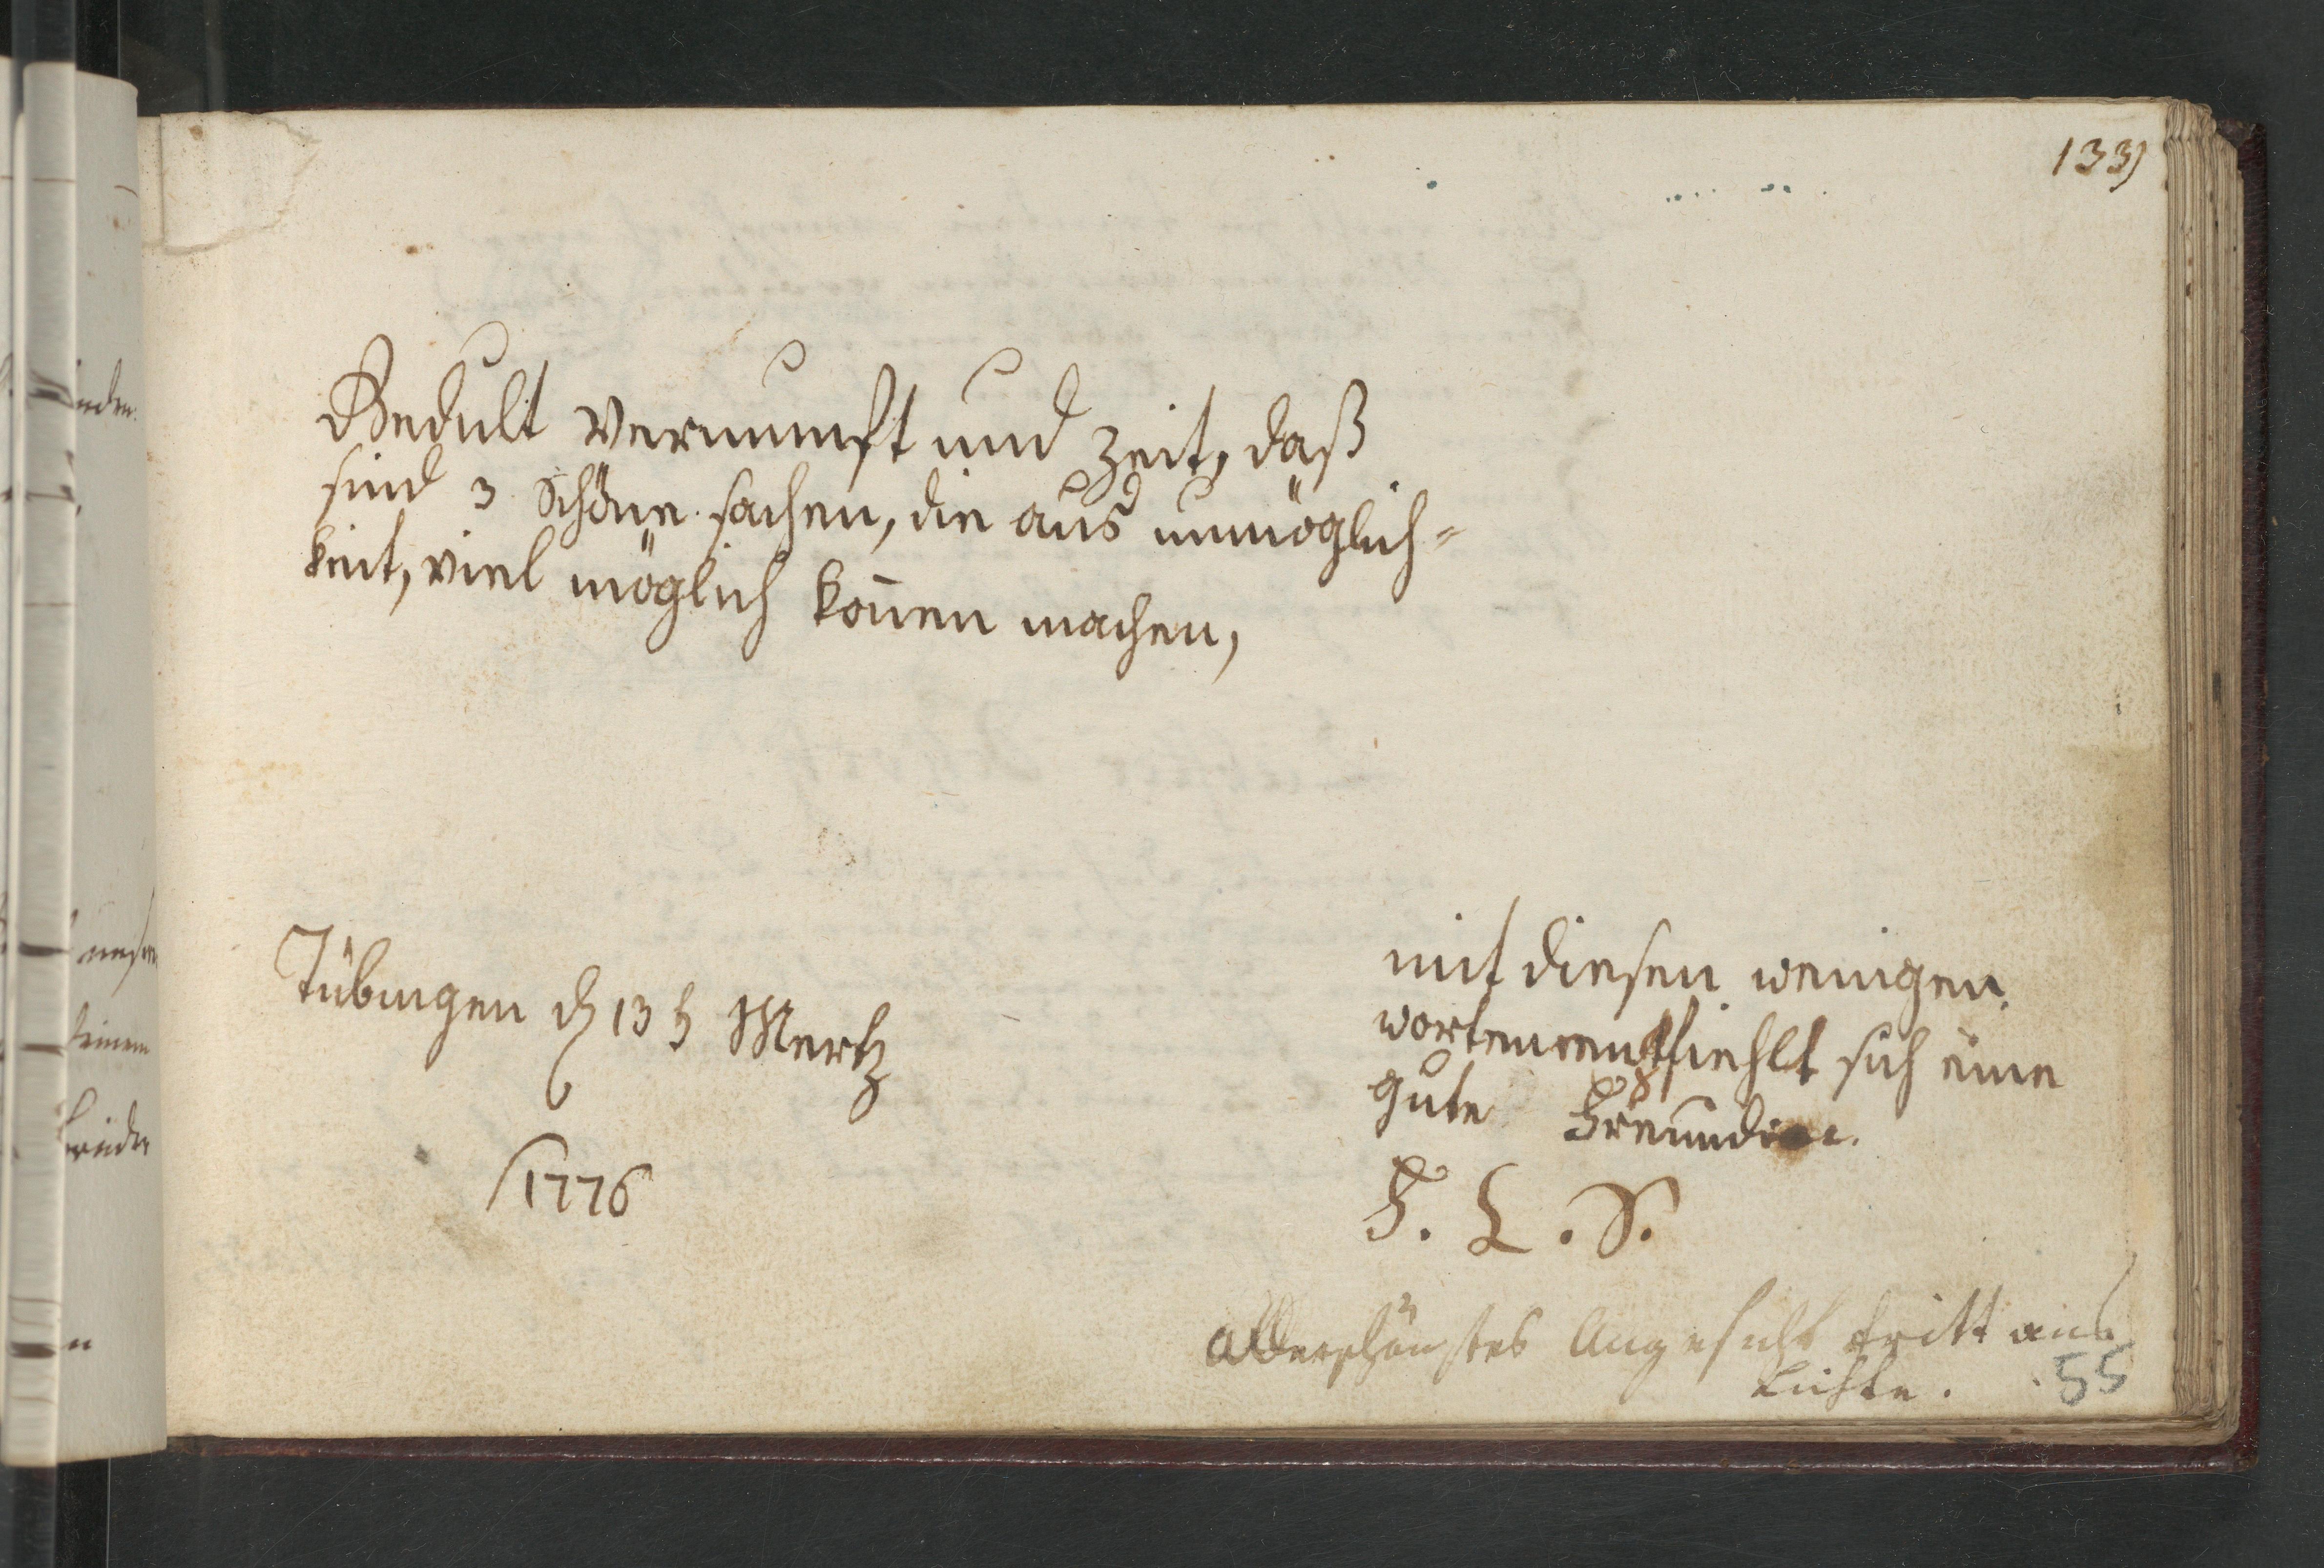 133)
Gedult Vernunfft und Zeit, daß
sind 3 Schöne sachen, die aus unmöglich=
keit, viel möglich könen machen,
Tübingen d 13 t Mertz
1776
mit diesen wenigen
worten entfiehlt sich eine
gute Freundin.
F. L. S.
allerschönstes Angesicht tritt ans
Lichte.
55